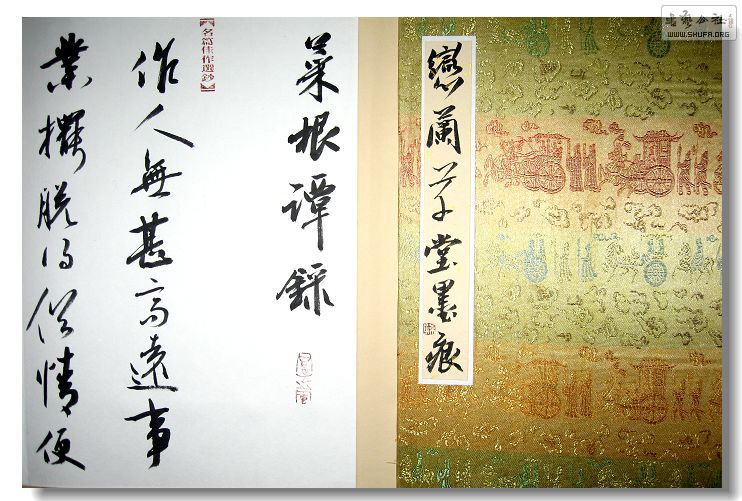 書藝公社
WWW.SHUFA.ORG
戀蘭草堂墨痕
菜根譚錄
【名篇佳作選鈔】
作人無甚高遠事
業擺脫得俗情便